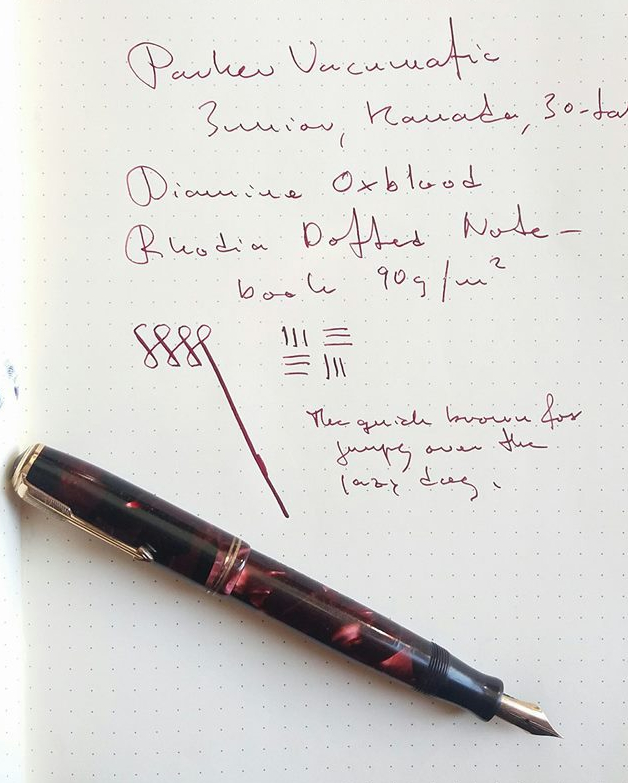 Parker Vacumatic
Junior, Kanada, 30-
Diamine Oxblood
Rhodia Dotted Note-
book 90g/m²
The quick brown fox
jumps over the
lazy dog.